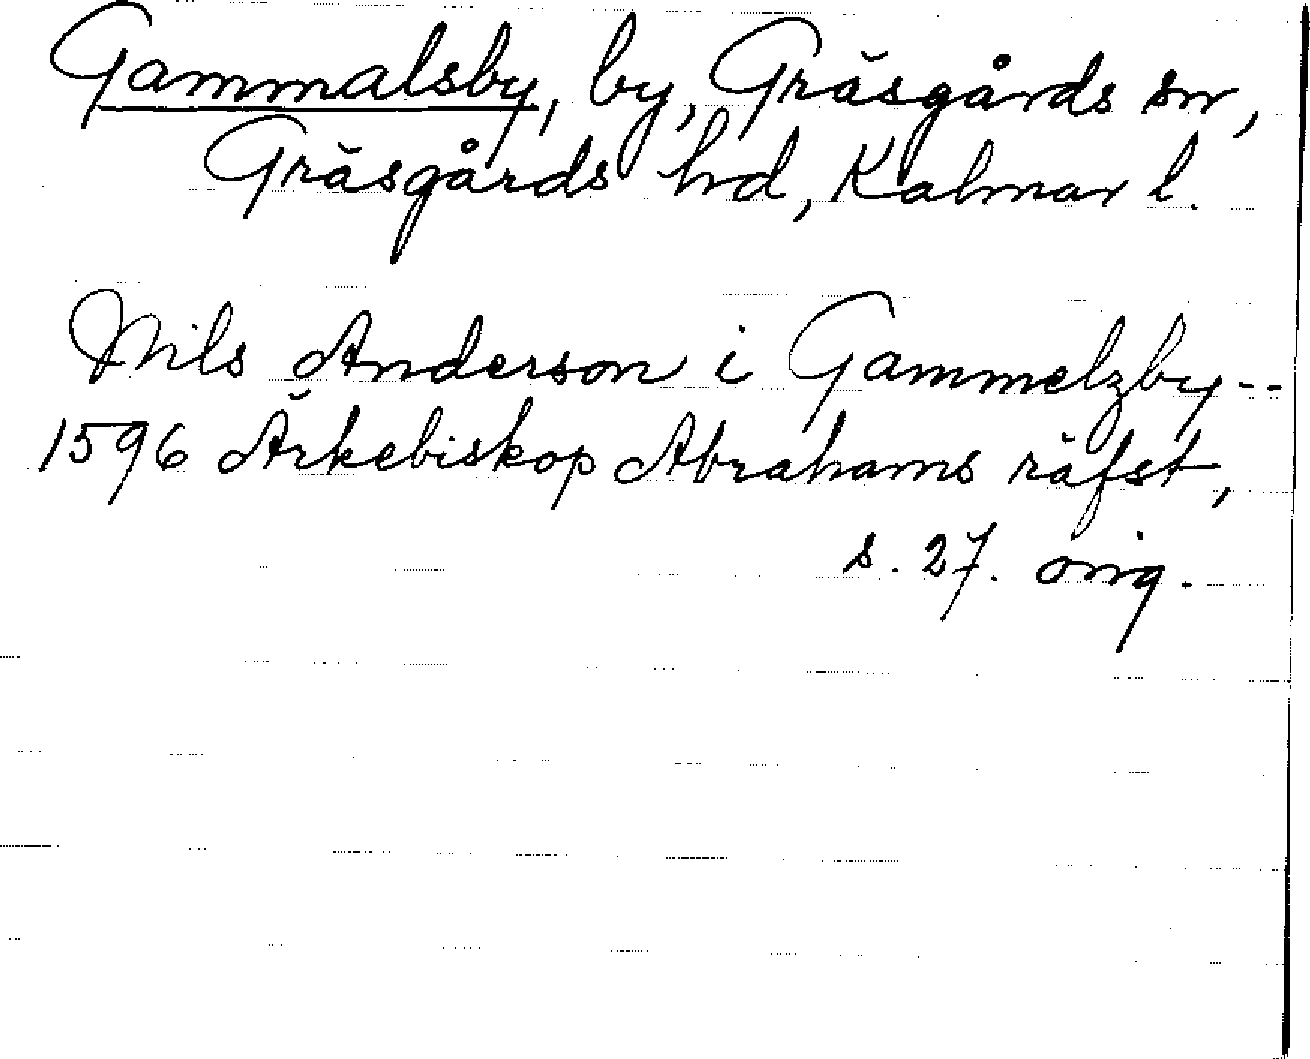 Gammalsby, by, Gräsgårds sn,
Gräsgårds hd, Kalmar l.
Nils Anderson i Gammelzby--
1596 Ärkebiskop Abrahams räfst,
s. 27. orig.